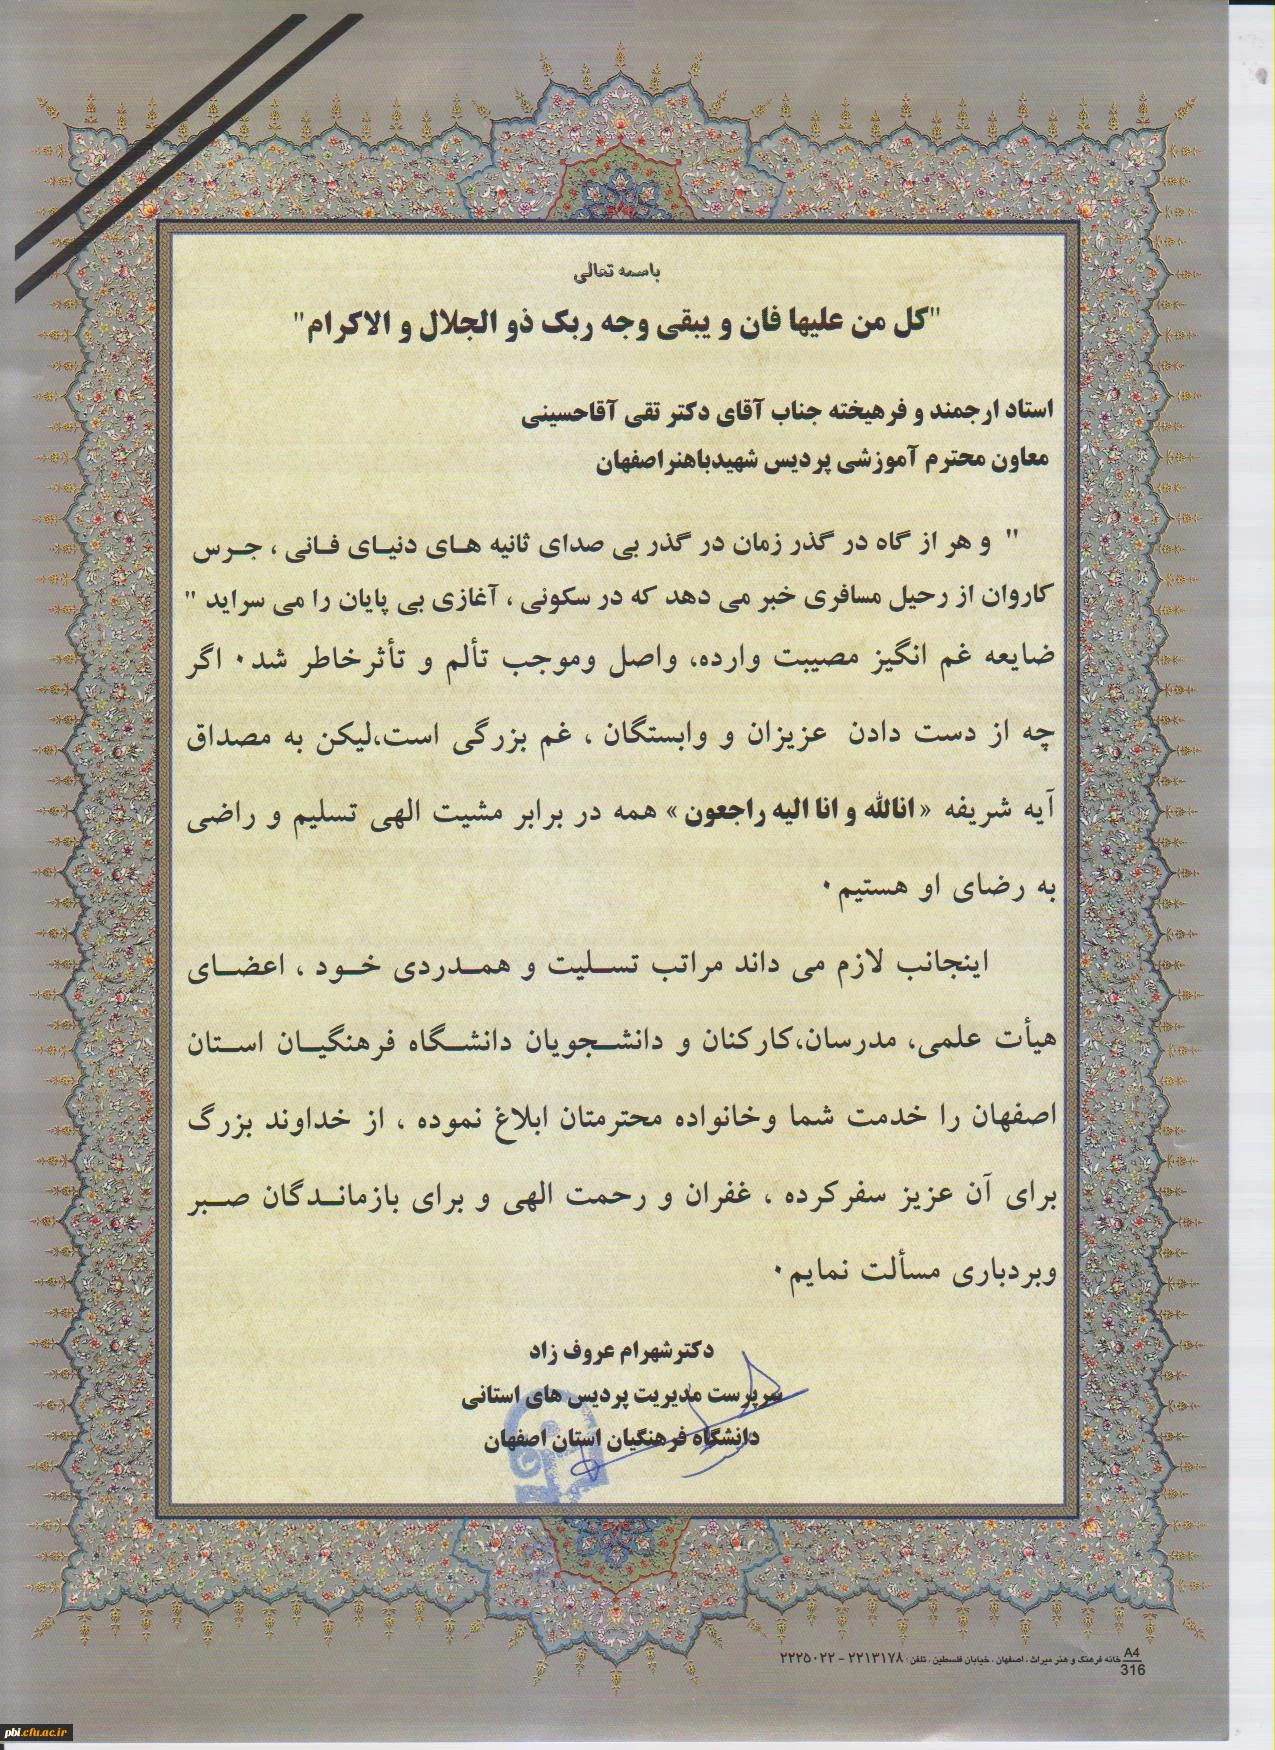 باسمه تعالی
"کل من علیها فان و یبقی وجه ربک ذو الجلال و الاکرام"
استاد ارجمند و فرهیخته جناب آقای دکتر تقی آقاحسینی
معاون محترم آموزشی پردیس شهیدباهنراصفهان
" و هر از گاه در گذر زمان در گذر بی صدای ثانیه های دنیای فانی ، جرس
کاروان از رحیل مسافری خبر می دهد که در سکونی ، آغازی بی پایان را می سراید "
ضایعه غم انگیز مصیبت وارده، واصل وموجب تألم و تأثرخاطر شد۰ اگر
چه از دست دادن عزیزان و وابستگان ، غم بزرگی است،لیکن به مصداق
آیه شریفه «انالله و انا الیه راجعون» همه در برابر مشیت الهی تسلیم و راضی
به رضای او هستیم۰
اینجانب لازم می داند مراتب تسلیت و همدردی خود ، اعضای
هیأت علمی، مدرسان،کارکنان و دانشجویان دانشگاه فرهنگیان استان
اصفهان را خدمت شما وخانواده محترمتان ابلاغ نموده ، از خداوند بزرگ
برای آن عزیز سفرکرده ، غفران و رحمت الهی و برای بازماندگان صبر
وبردباری مسألت نمایم۰
دکترشهرام عروف زاد
سرپرست مدیریت پردیس های استانی
دانشگاه فرهنگیان استان اصفهان
A4
316 خانه فرهنگ و هنر میراث ، اصفهان ، خیابان فلسطین ، تلفن : ۲۲۱۳۱۷۸ - ۲۲۲۵۰۲۲
pbi.cfu.ac.ir